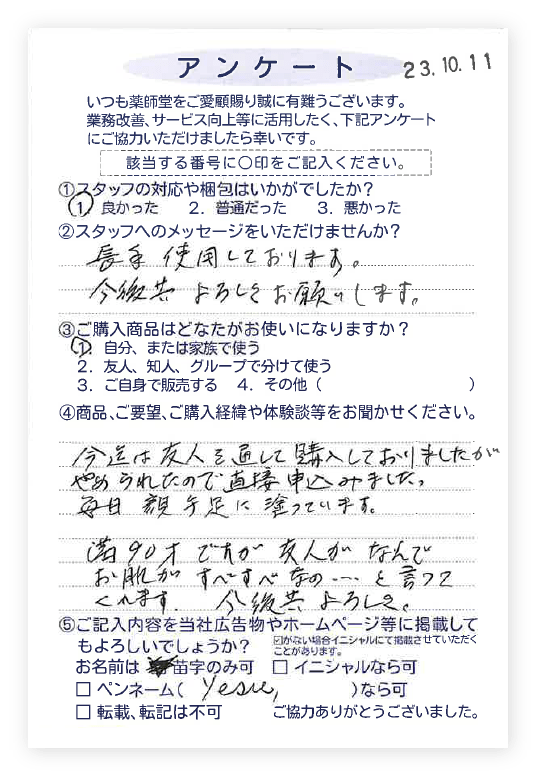 アンケート
23.10.11
いつも薬師堂をご愛顧賜り誠に有難うございます。
業務改善、サービス向上等に活用したく、下記アンケート
にご協力いただけましたら幸いです。
該当する番号に〇印をご記入ください。
①スタッフの対応や梱包はいかがでしたか?
1. 良かった 2. 普通だった 3. 悪かった
②スタッフへのメッセージをいただけませんか?
長年 使用しております。
今後共 よろしくお願いします。
③ご購入商品はどなたがお使いになりますか?
1. 自分、または家族で使う
2. 友人、知人、グループで分けて使う
3. ご自身で販売する 4. その他( )
④商品、ご要望、ご購入経緯や体験談等をお聞かせください。
今迄は友人を通して購入しておりましたが
やめられたので直接申込みました。
毎日 顔 手足に 塗っています。
満90才ですが 友人が なんで
お肌が すべすべなの…と言って
くれます. 今後共よろしく。
⑤ご記入内容を当社広告物やホームページ等に掲載して
もよろしいでしょうか?
☑がない場合イニシャルにて掲載させていただく
ことがあります。
お名前は 苗字のみ可 □ イニシャルなら可
□ ペンネーム( )なら可
□ 転載、転記は不可 ご協力ありがとうございました。